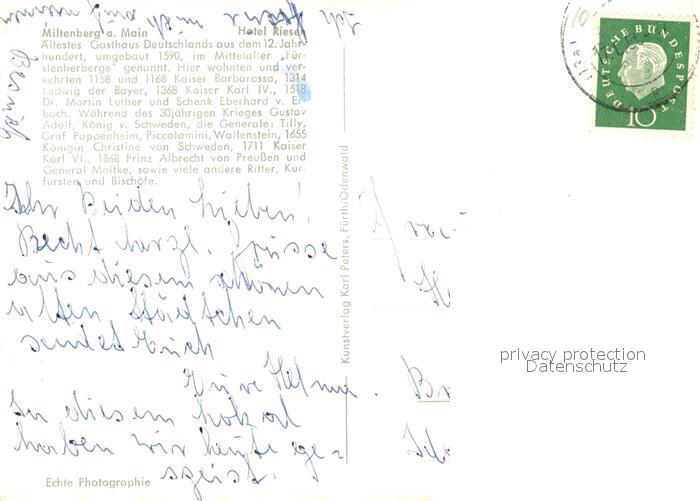 Miltenberg a. Main Hotel Riesen
Ältestes Gasthaus Deutschlands aus dem 12. Jahr-
hundert, umgebaut 1590, im Mittelalter „Für-
stenherberge" genannt. Hier wohnten und ver-
kehrten 1158 und 1168 Kaiser Barbarossa, 1314
Ludwig der Bayer, 1368 Kaiser Karl IV., 1518
Dr. Martin Luther und Schenk Eberhard v. Er-
bach. Während des 30jährigen Krieges Gustav
Adolf, König v. Schweden, die Generale: Tilly,
Graf Pappenheim, Piccolomini, Wallenstein, 1655
Königin Christine von Schweden, 1711 Kaiser
Karl VI., 1868 Prinz Albrecht von Preußen und
General Moltke, sowie viele andere Ritter, Kur-
fürsten und Bischöfe.
Ihr Beiden Lieben!
Recht herzl. Grüsse
aus diesem schönen
alten Städtchen
sendet Euch
Eure Helma.
In diesem Lokal
haben wir heute ge=
speist.
Ich freue mich auf
Besuch
Echte Photographie
Kunstverlag Karl Peters, Fürth/Odenwald
DEUTSCHE BUNDESPOST
10
privacy protection
Datenschutz